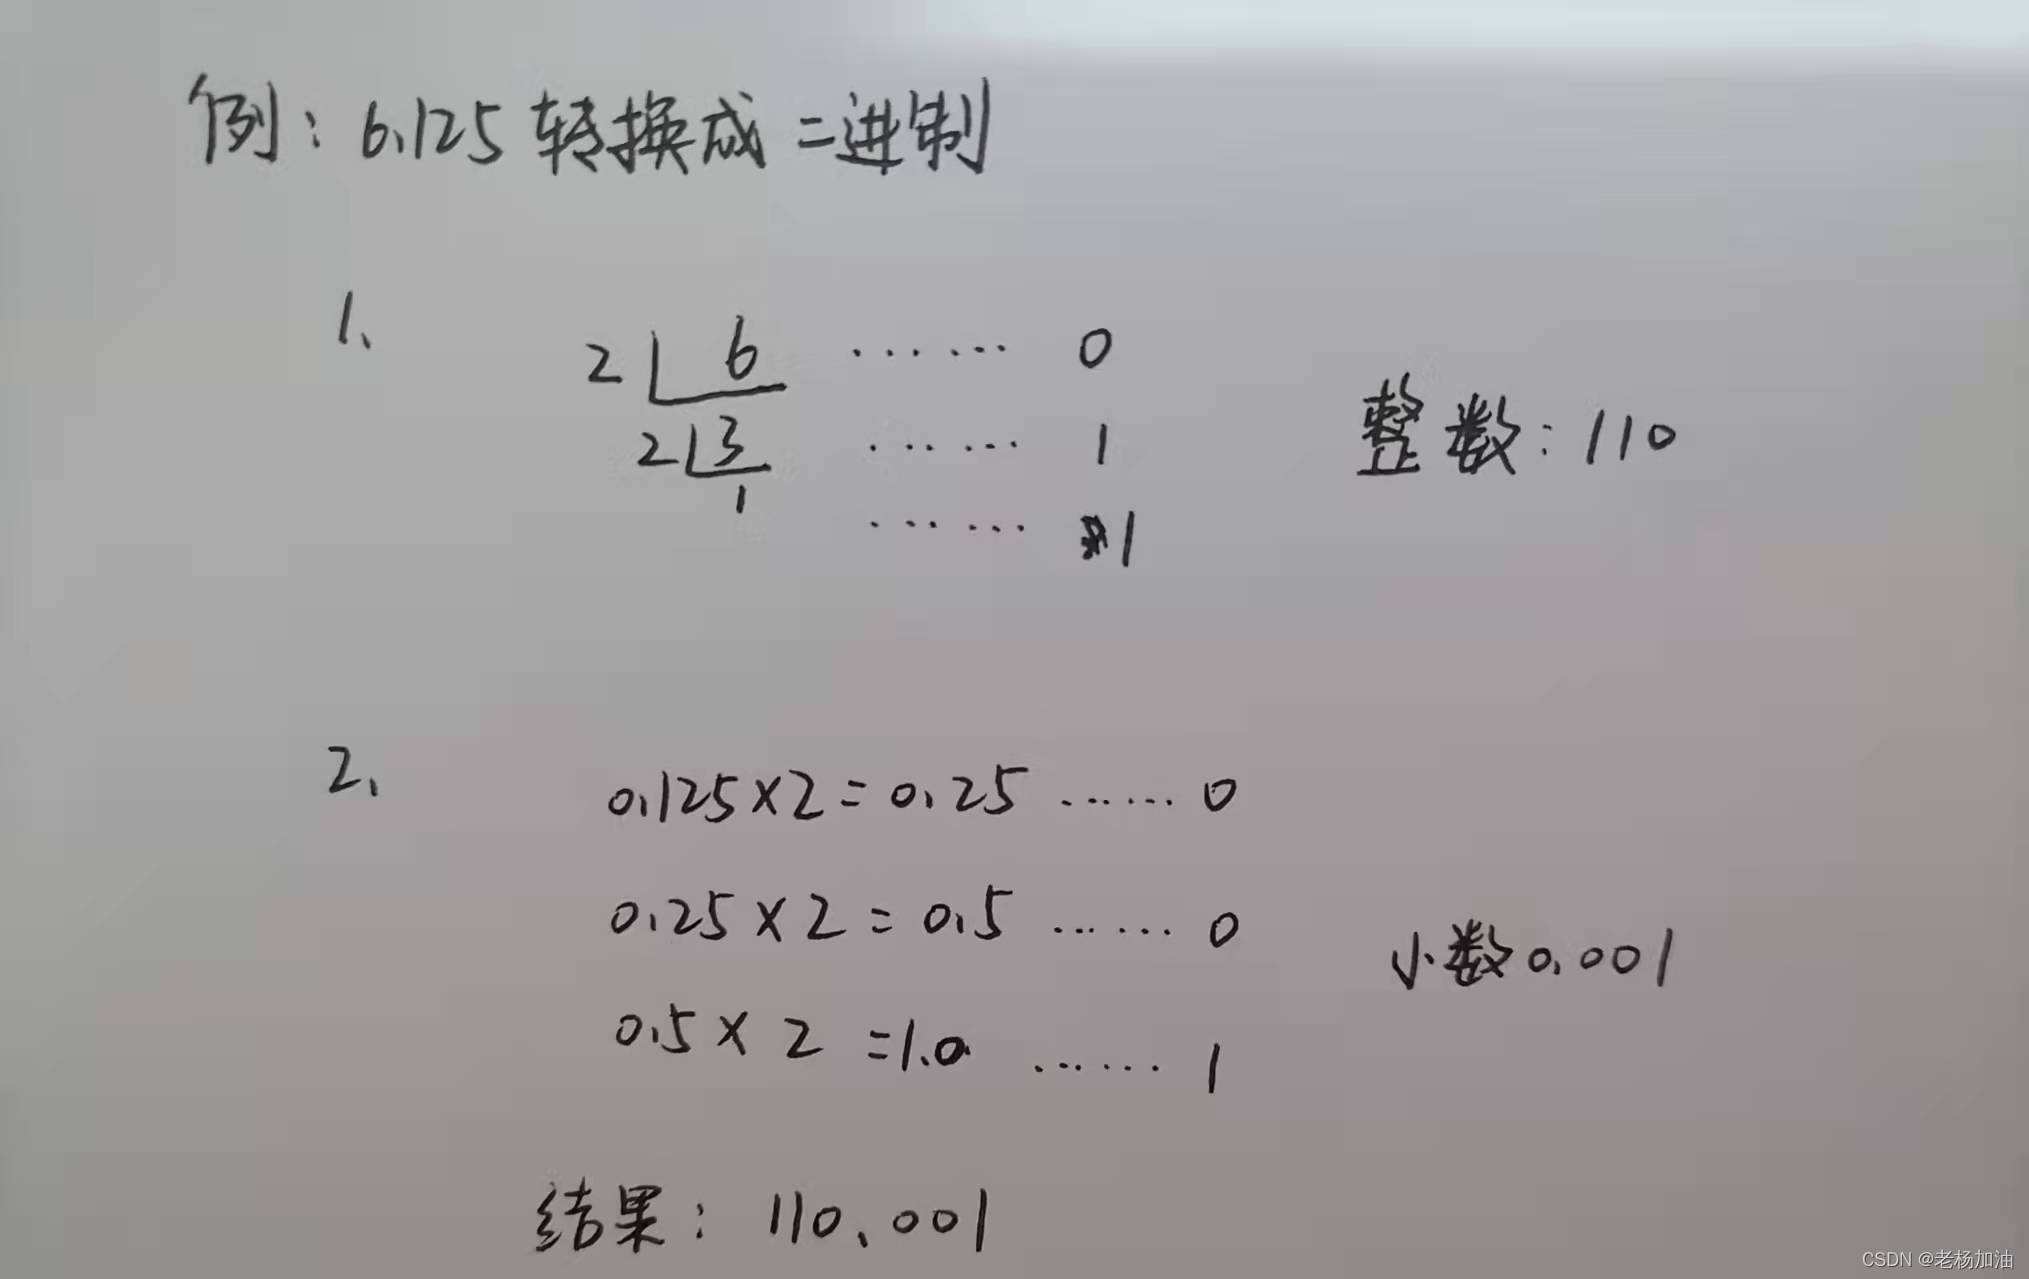 例：6.125 转换成二进制
1、
2 6 …… 0
2 3 …… 1
1 …… 1
整数：110
2、
0.125×2=0.25 …… 0
0.25×2=0.5 …… 0
0.5×2=1.0 …… 1
小数0.001
结果：110.001
CSDN @老杨加油